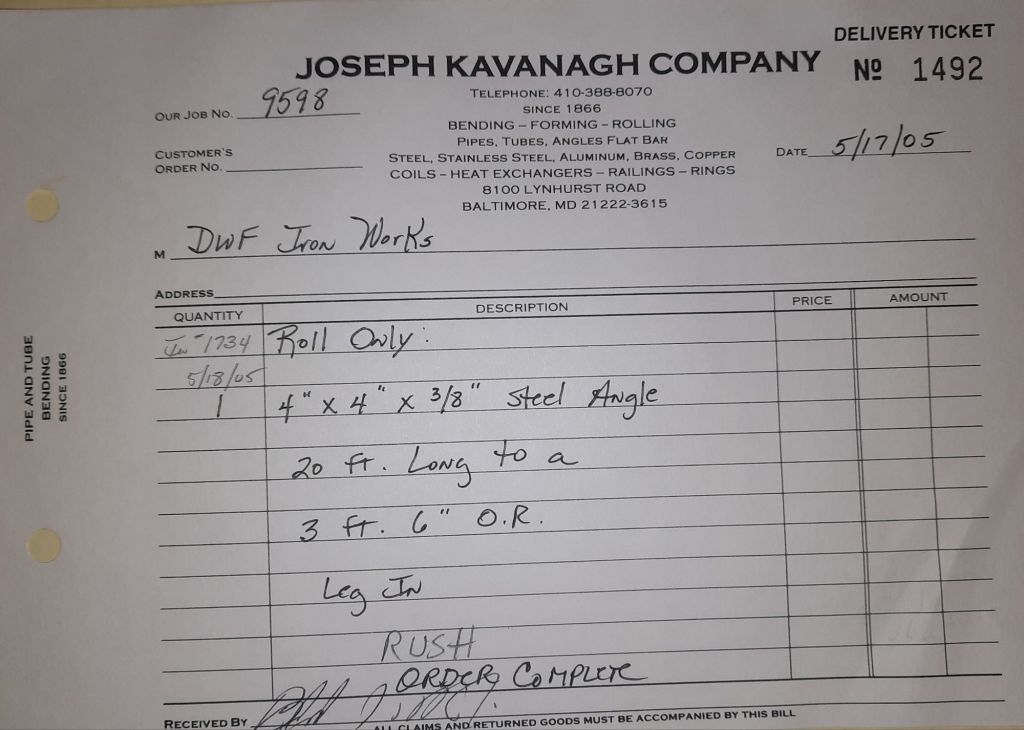 DELIVERY TICKET
JOSEPH KAVANAGH COMPANY
Nº 1492
TELEPHONE: 410-388-8070
OUR JOB NO. 9598
SINCE 1866
BENDING – FORMING – ROLLING
PIPES, TUBES, ANGLES FLAT BAR
CUSTOMER'S
ORDER NO.
STEEL, STAINLESS STEEL, ALUMINUM, BRASS, COPPER
DATE 5/17/05
COILS – HEAT EXCHANGERS – RAILINGS – RINGS
8100 LYNHURST ROAD
BALTIMORE, MD 21222-3615
M DWF Iron Works
ADDRESS
QUANTITY DESCRIPTION PRICE AMOUNT
1734 Roll Only:
5/18/05
1 4" x 4" x 3/8" Steel Angle
20 ft. Long to a
3 ft. 6" O.R.
Leg In
RUSH
ORDER COMPLETE
RECEIVED BY
ALL CLAIMS AND RETURNED GOODS MUST BE ACCOMPANIED BY THIS BILL
PIPE AND TUBE
BENDING
SINCE 1866